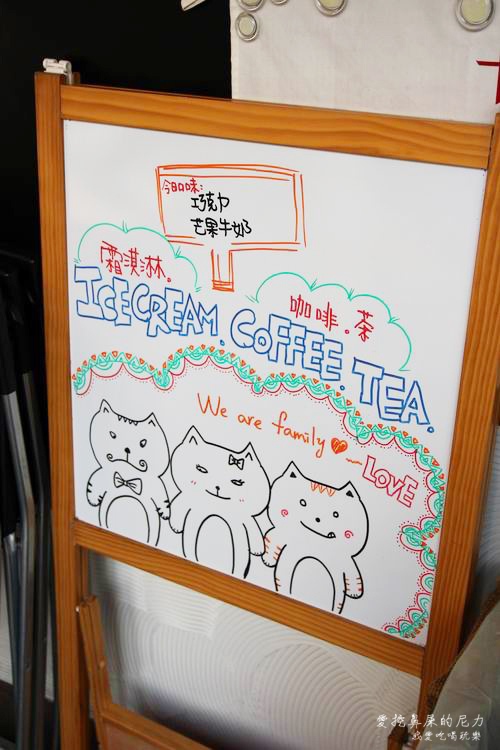 今日口味:
巧克力
芒果牛奶
霜淇淋.
咖啡.茶
ICECREAM. COFFEE. TEA.
We are family
LOVE
愛挖鼻屎的尼力
我愛吃喝玩樂